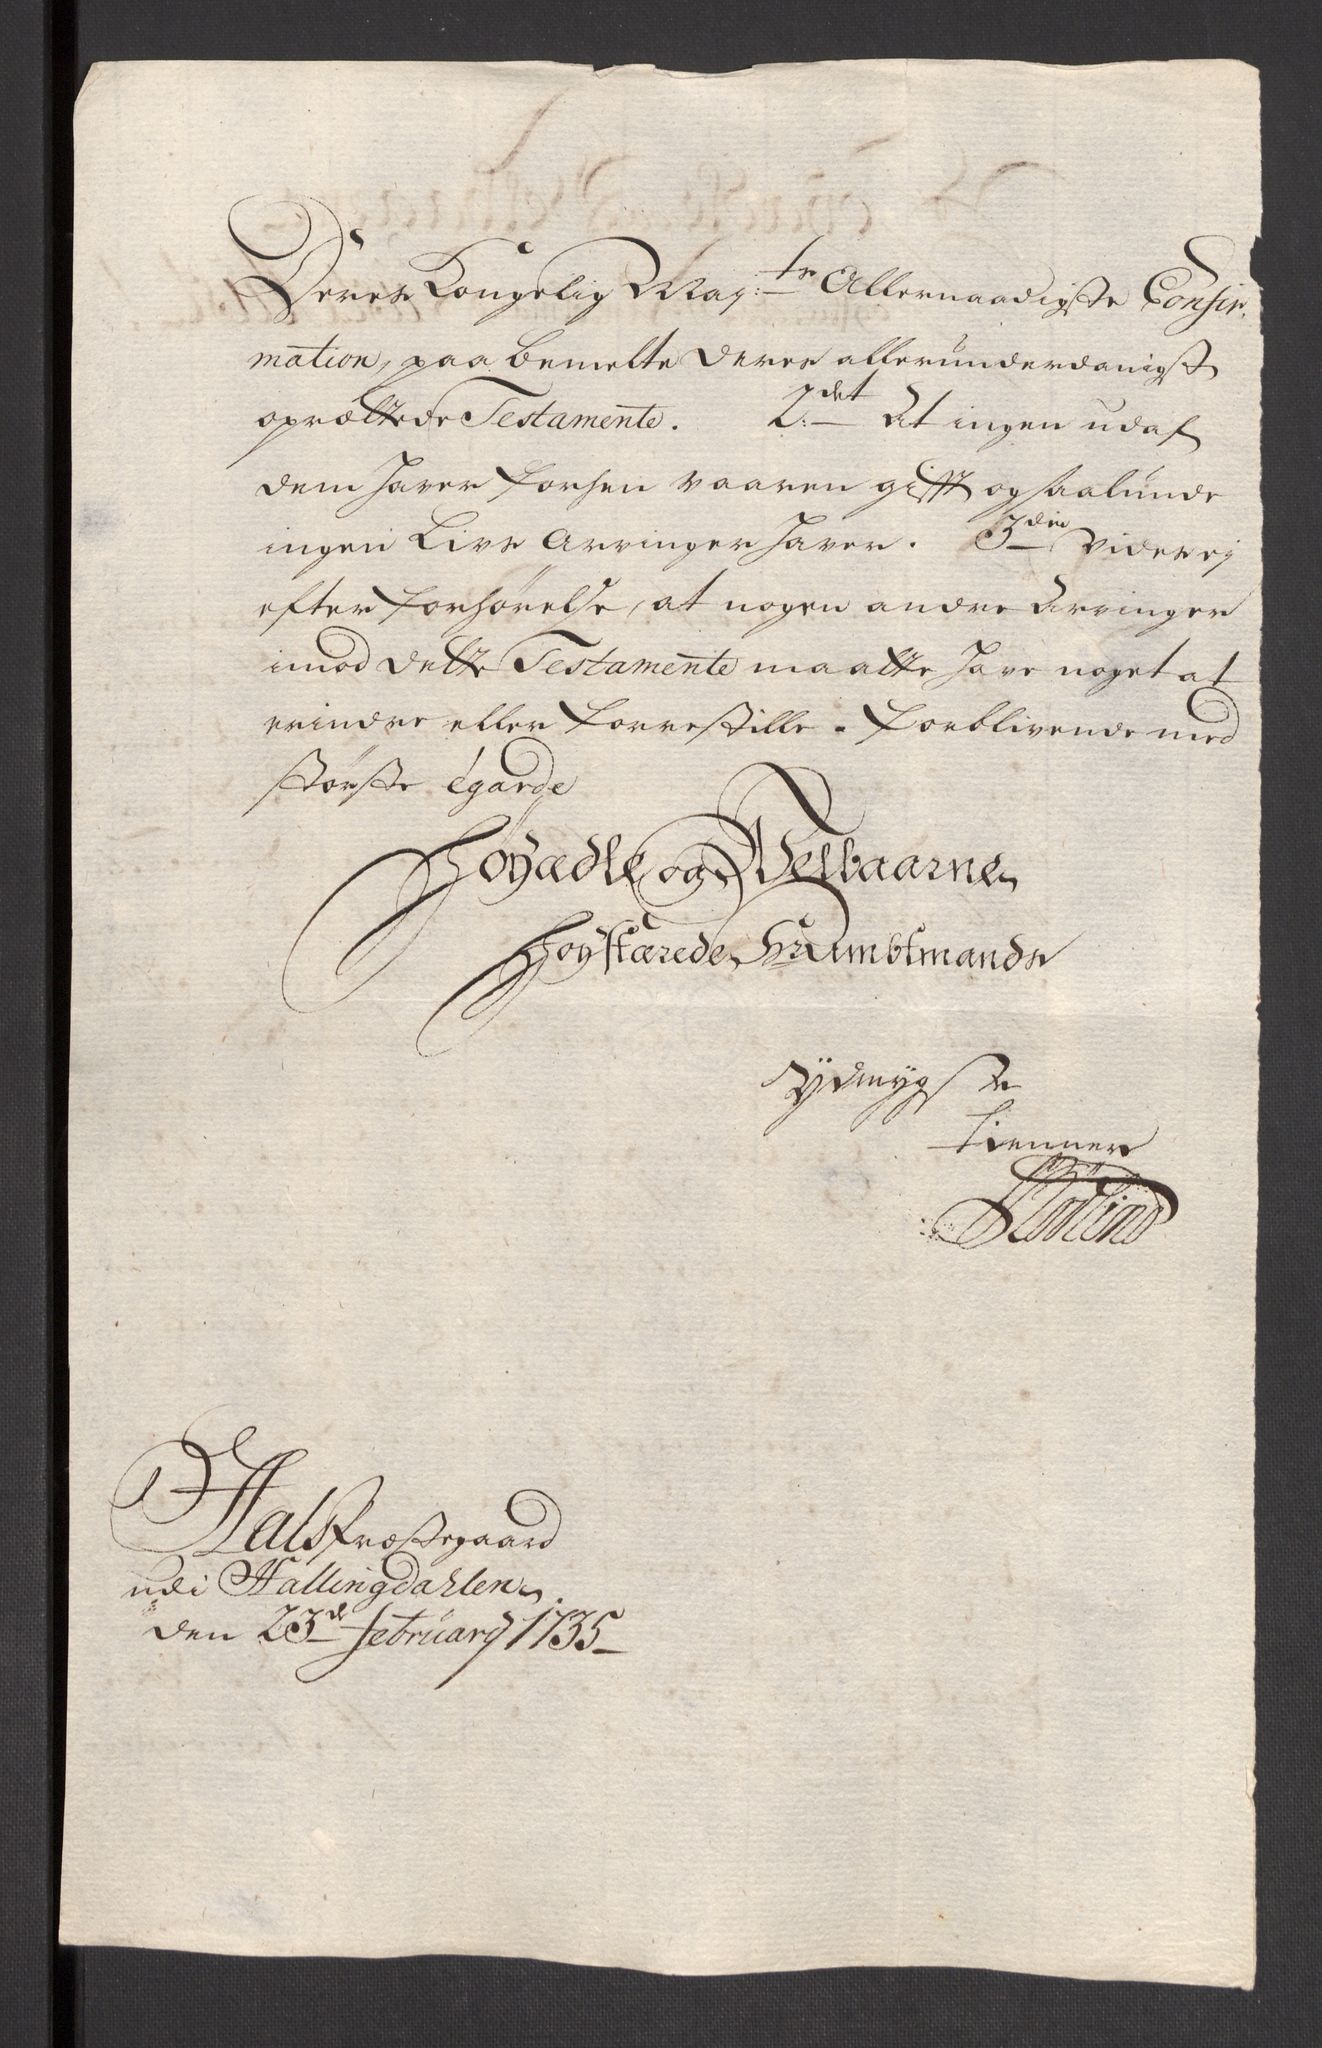 Deres Kongelig May:ts Allernaadigste Confir-
mation, paa bemelte deres allerunderdanigst
oprættede Testamente. 2:det At ingen udaf
dem haver forhen vaaren gifft og saalunde
ingen Livs Arvinger haver. 3die Vides ej
efter forhørelse, at nogen andre Arvinger
imod dette Testamente maatte have noget at
erindre eller forrestille. forblivende med
største égarde
Høyædle og Velbaarne
Høystærede Hr Ambtmands
Ydmygste
tienner
Aals Præstegaard
udi Hallingdahlen
den 23de february 1735